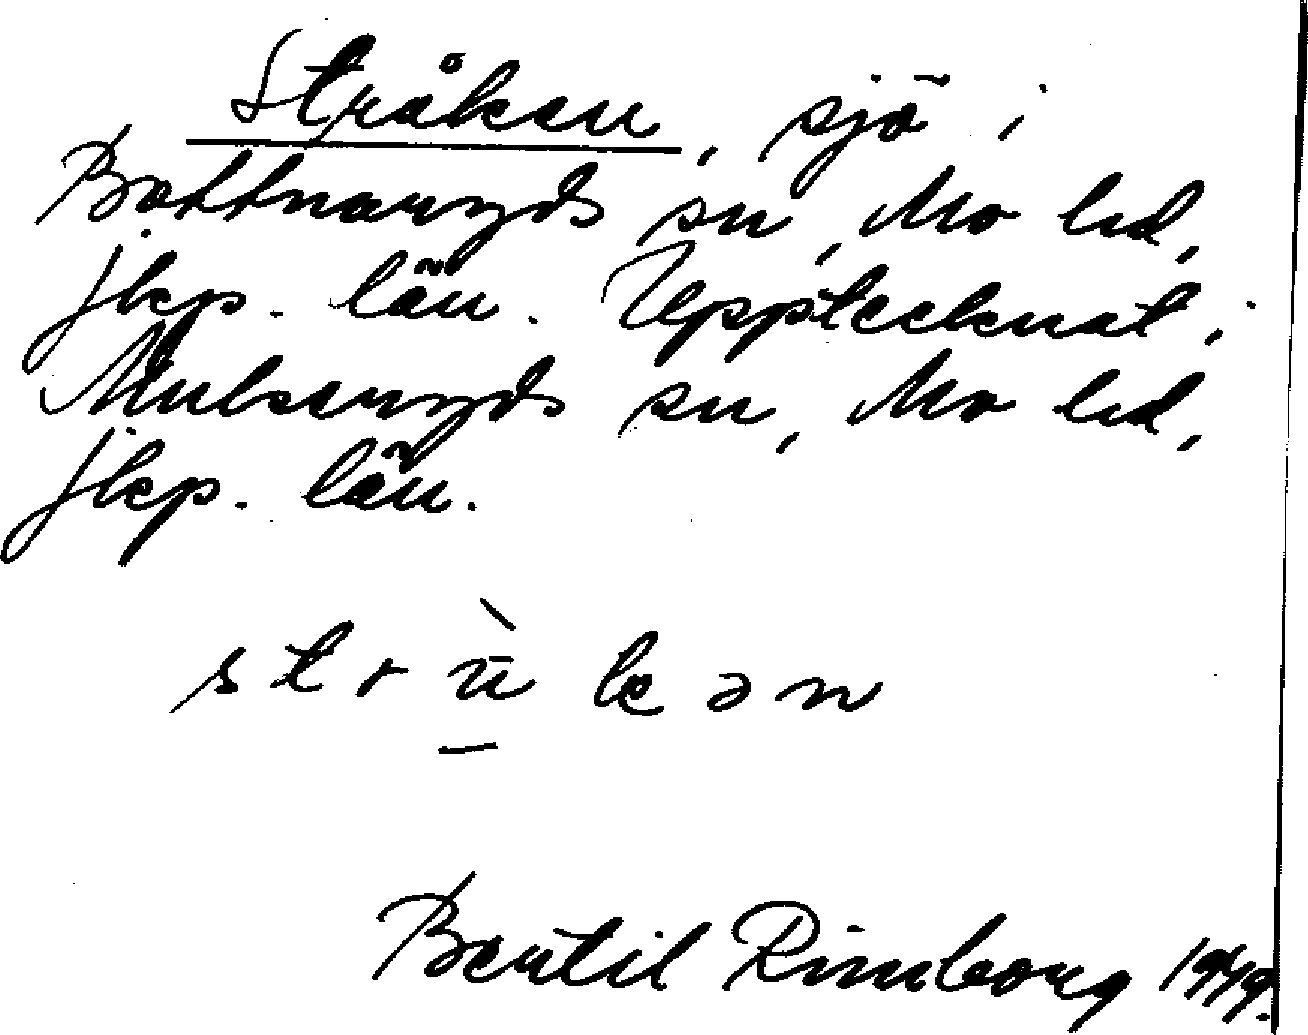 Stråken, sjö i
Bottnaryds sn, Mo hd,
Jkp. län. Upptecknat i
Mulseryds sn, Mo hd,
Jkp. län.
strù̄kən
Bertil Rimborg 1949.